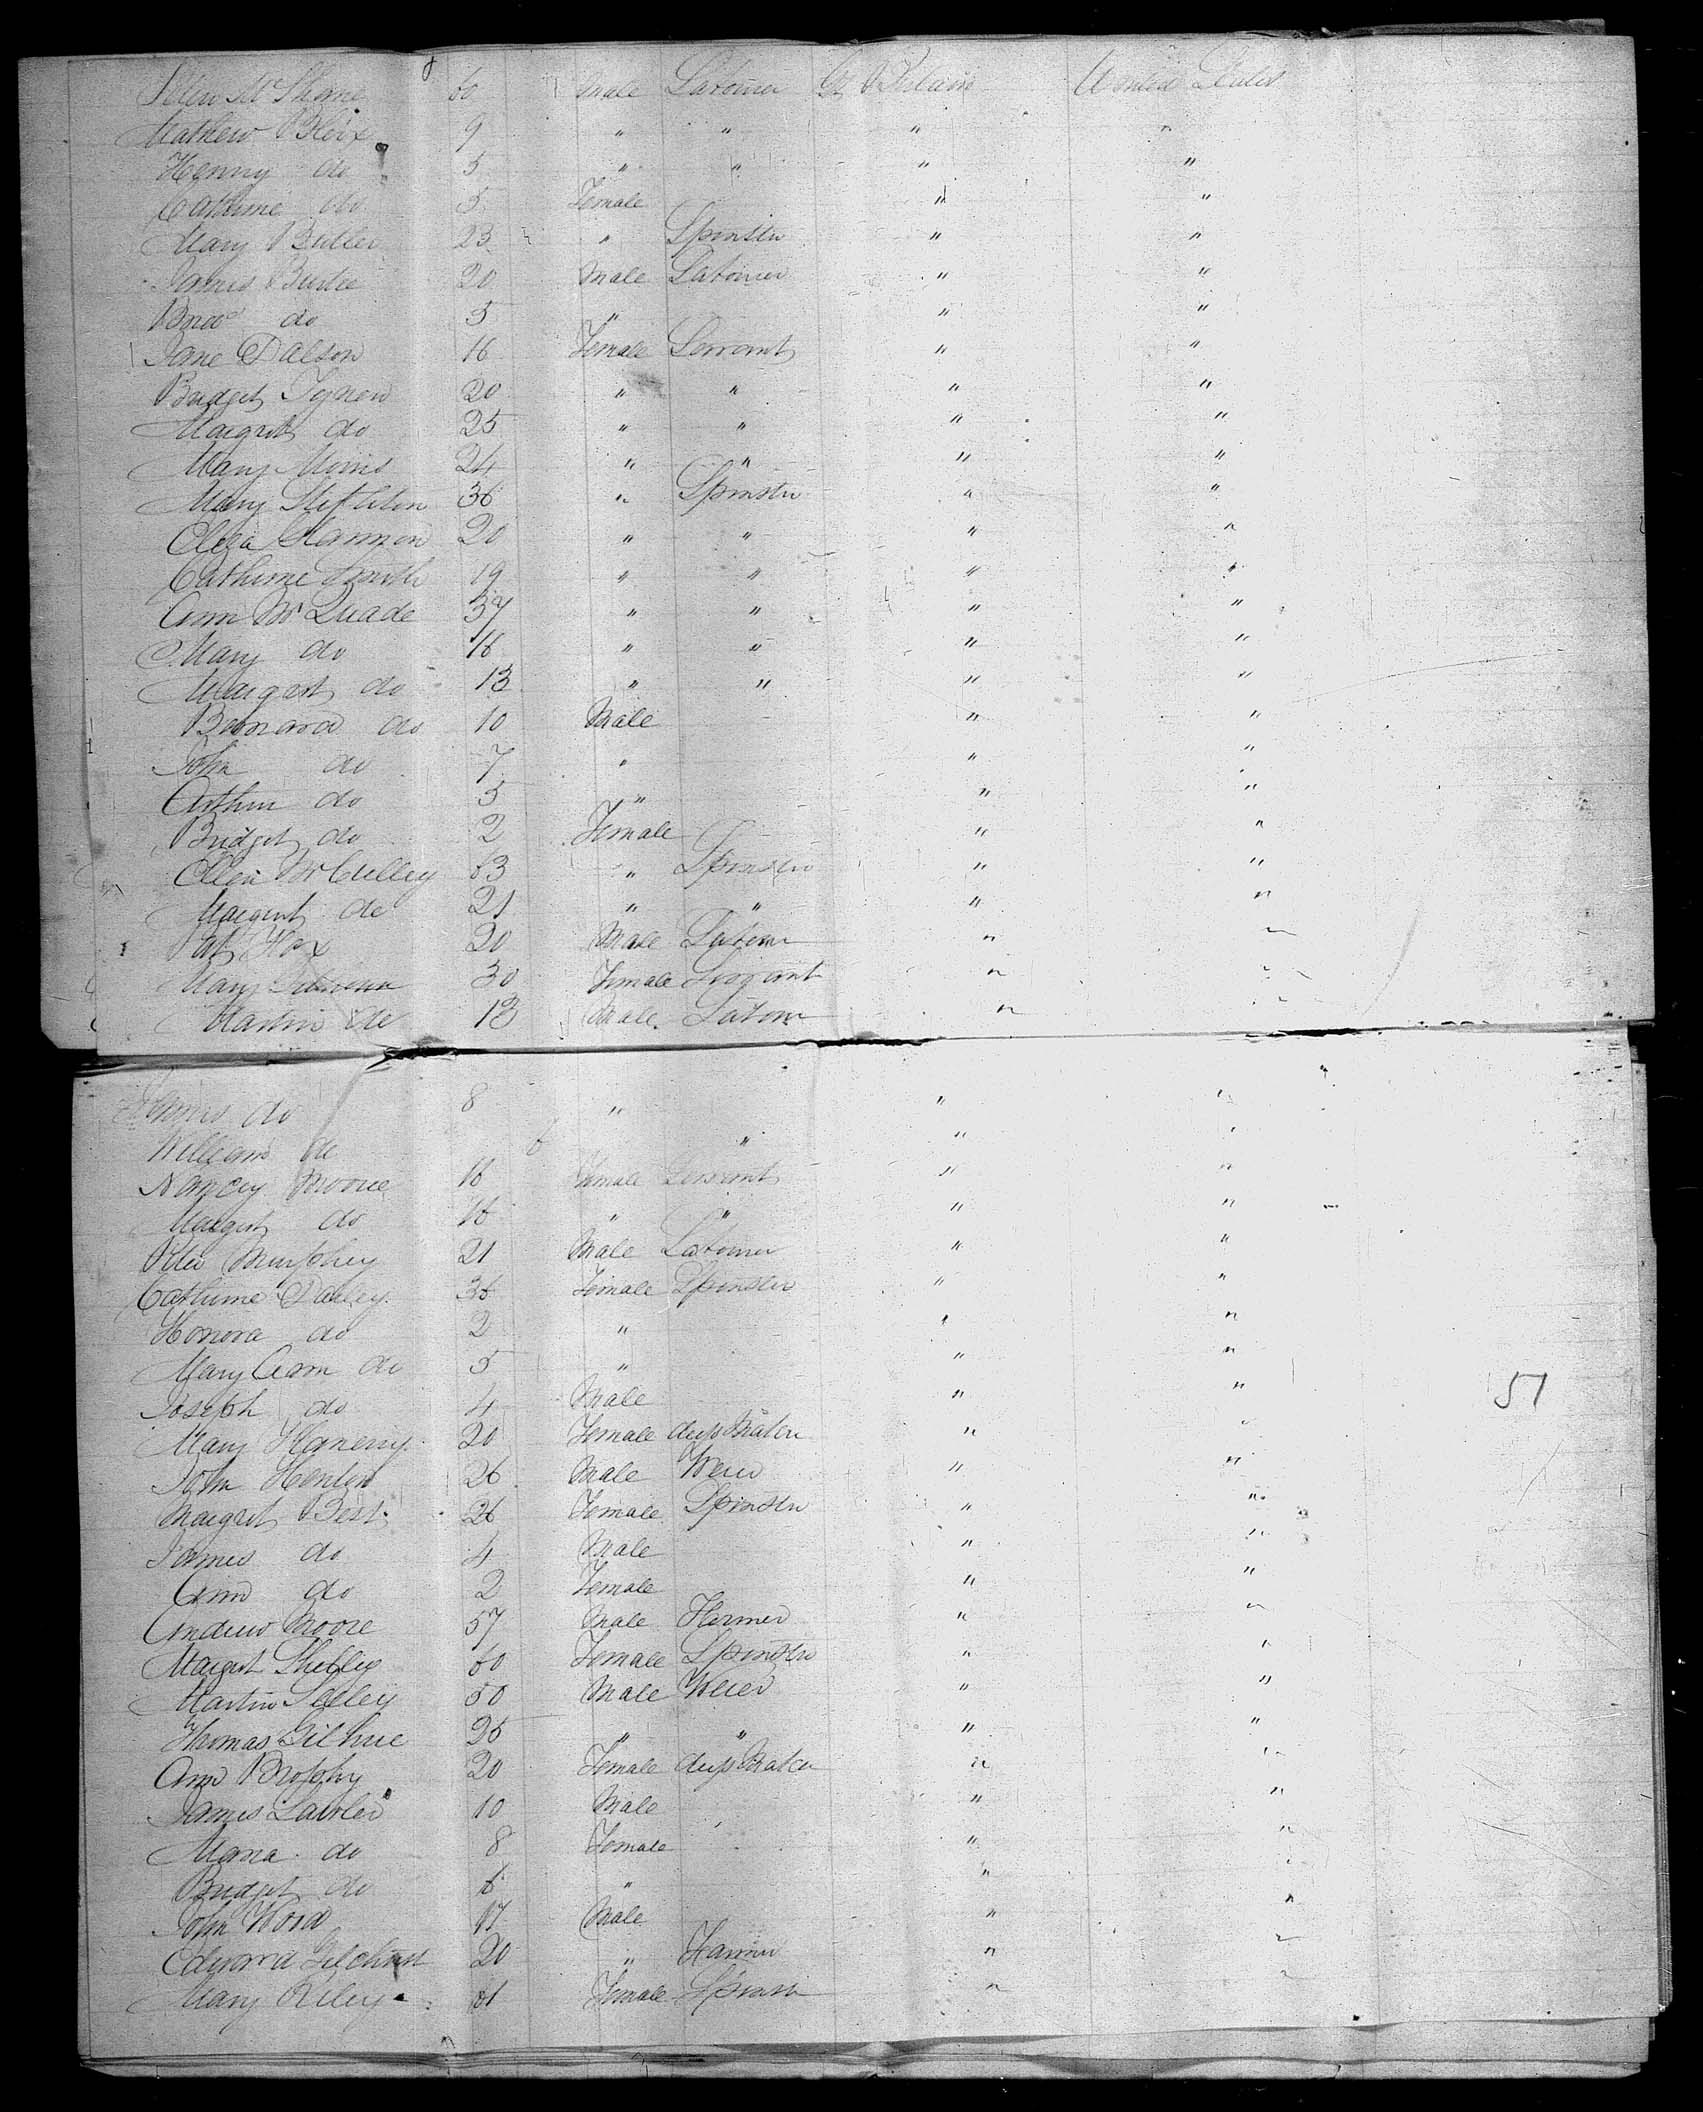 Mc Shane 60 Male Labourer Gt Britain United States
Mathew 9 " " " "
Henry do 5 " " " "
Catherine do 5 Female " "
Mary Butler 23 " Spinster " "
James Burke 20 Male Labourer " "
do 5 " " "
Jane Dalton 16 Female Servant " "
Bridget 20 " " " "
Margret do 25 " " " "
Mary Morris 24 " " " "
Mary 36 " Spinster " "
Eliza Hannon 20 " " " "
Catherine Smith 19 " " " "
Ann Mc Quade 37 " " " "
Mary do 16 " " " "
Margart do 13 " " " "
Barnard do 10 Male " "
John do 7 " " "
Arthur do 5 " " "
Bridget do 2 Female " "
Ellen Mc Culley 63 " Spinster " "
Margret do 21 " " " "
Pat 20 Male Labour " "
Mary 30 Female Servant " "
Martin do 13 Male Labour " "
do 8 " " "
William do 6 " " "
Nancy Moore 16 Female Servant " "
Margret do 16 " " " "
Peter Murphey 21 Male Labourer " "
Catherine Dailey 36 Female Spinster " "
Honora do 2 " " "
Mary Ann do 5 " " "
Joseph do 4 Male " " 51
Mary 20 Female dress Maker " "
John 26 Male " "
Margret Best 26 Female Spinster " "
James do 4 Male " "
Ann do 2 Female " "
Andrew Moore 57 Male Farmer " "
Margret 60 Female Spinster " "
Martin 50 Male " "
Thomas 25 " " " "
Ann Brophy 20 Female dress Maker " "
James Lawler 10 Male " "
Maria do 8 Female " "
Bridget do 6 " " "
John Ward 17 Male " "
Edward Gilchrist 20 " Farmer " "
Mary Riley 61 Female Spinster " "